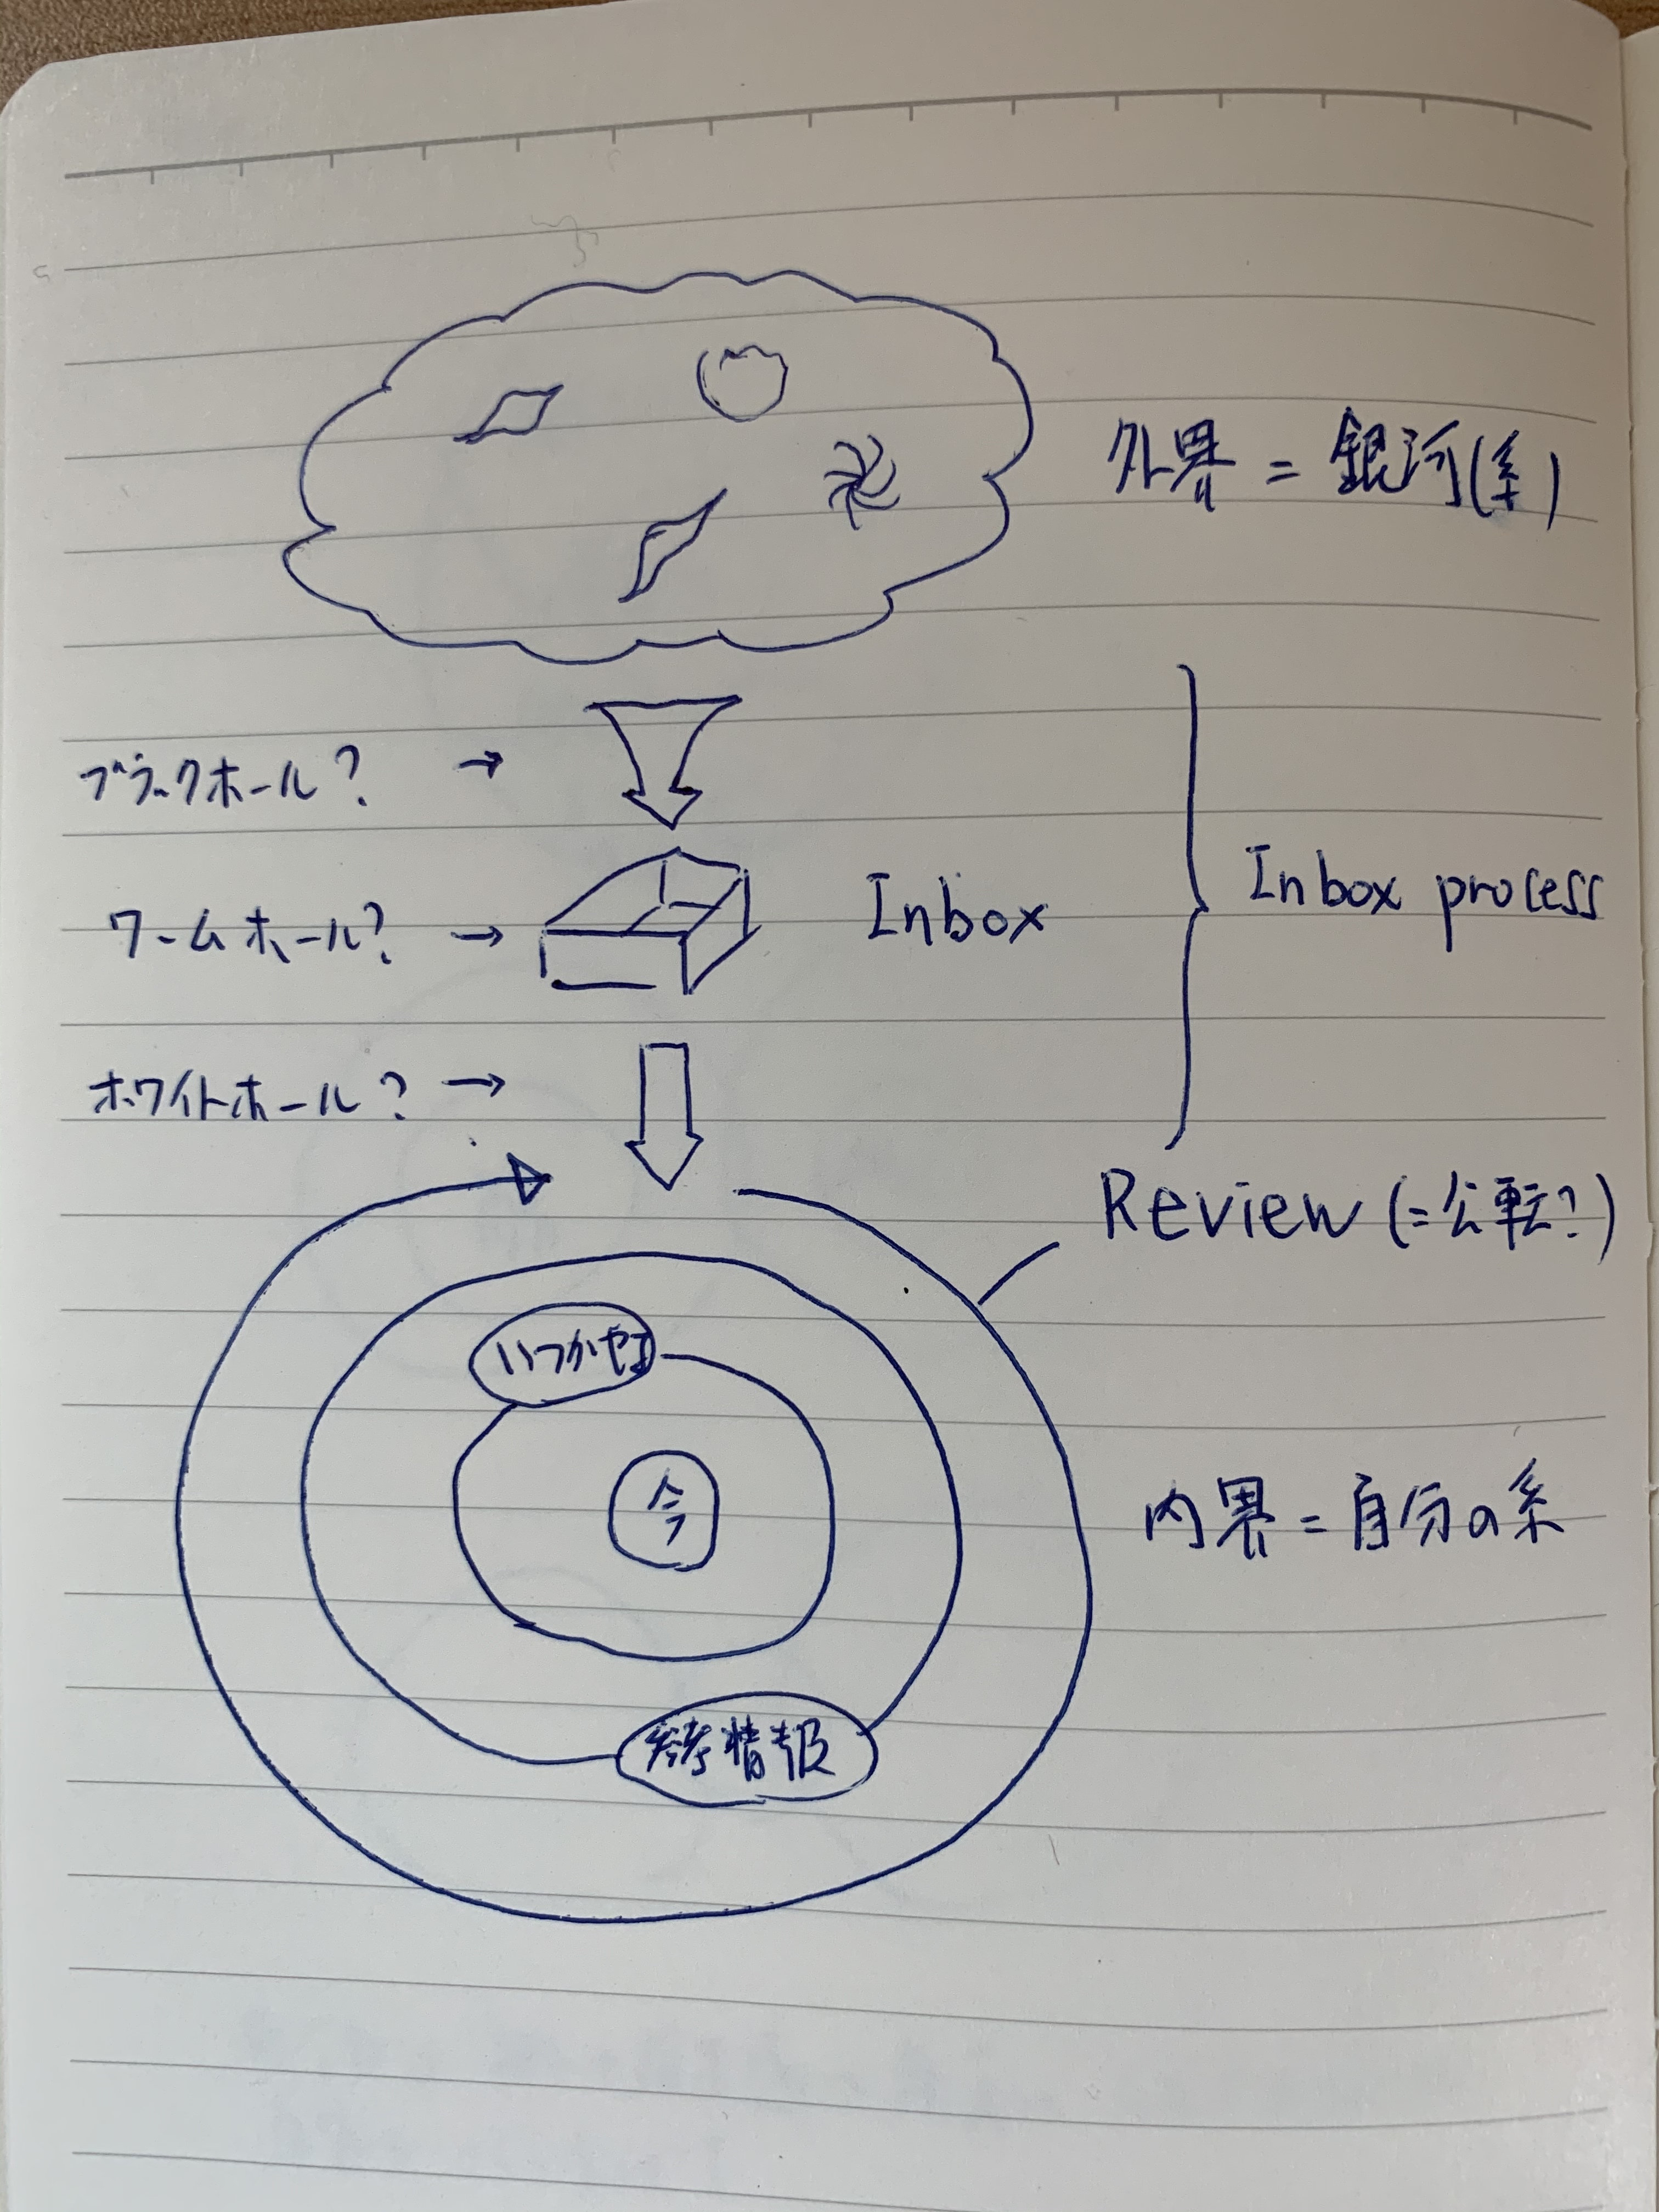 外界 = 銀河(系)
ブラックホール? →
ワームホール? →
Inbox
Inbox process
ホワイトホール? →
Review (=公転?)
いつかやる
今
内界 = 自分の系
参考情報